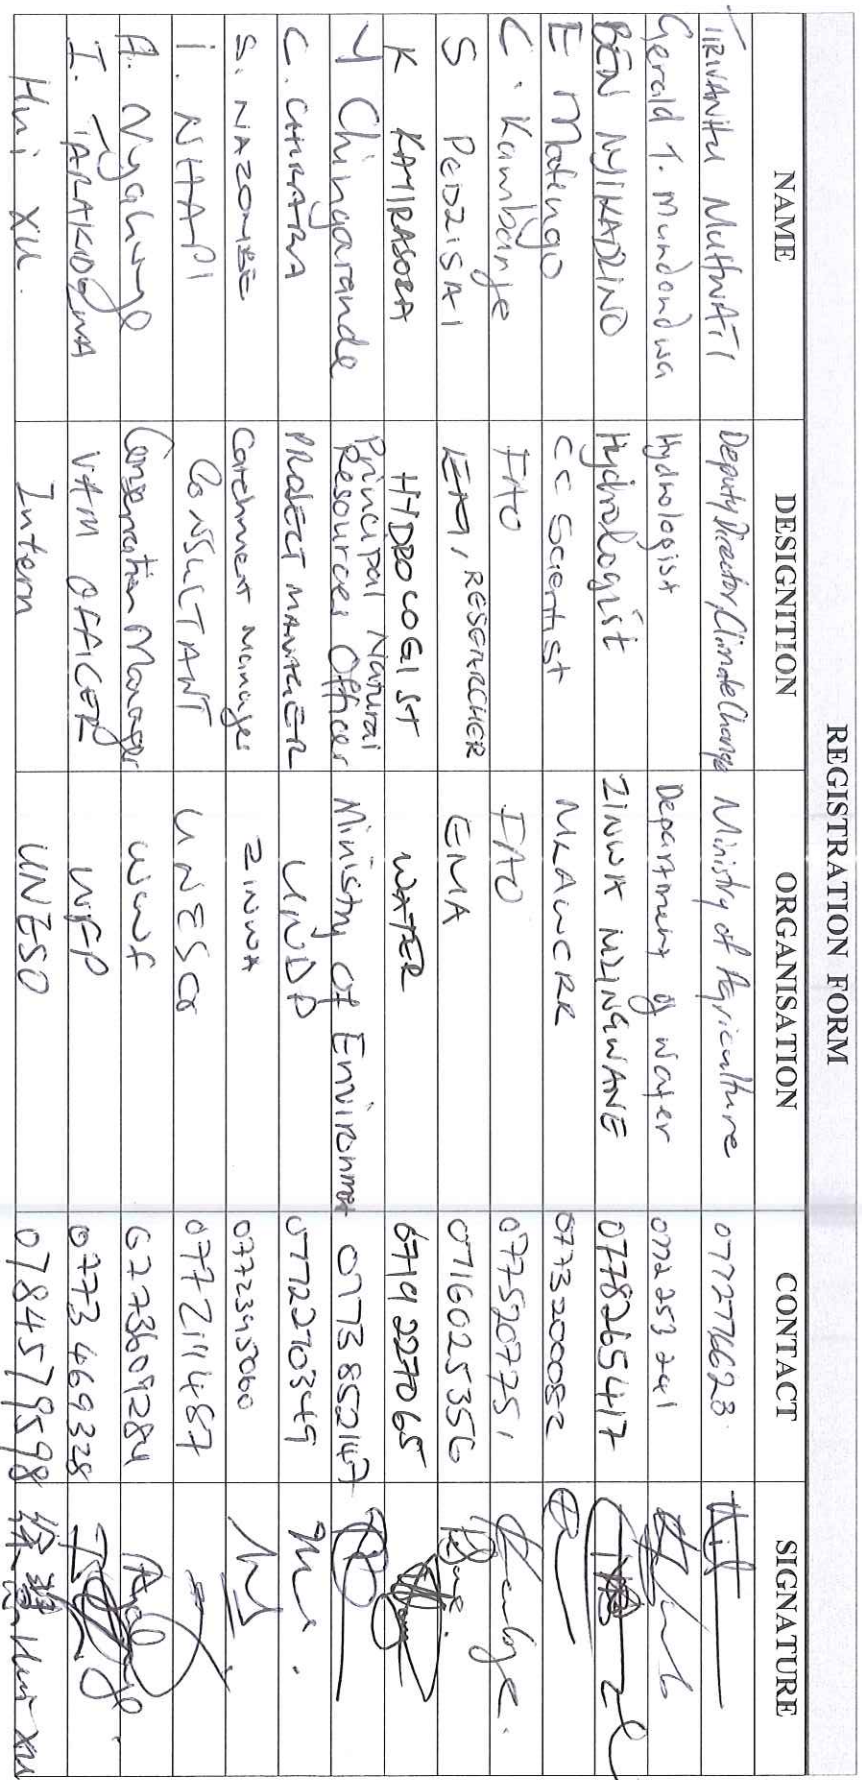 REGISTRATION FORM
NAME DESIGNITION ORGANISATION CONTACT SIGNATURE
TIRIVANHU MUHWATI Deputy Director, Climate Change Ministry of Agriculture 0772776623
Gerald T. Mundondwa Hydrologist Department of Water 0772 253 241
BEN NYIKADZINO Hydrologist ZINWA MZINGWANE 0778265417
E Madungo CC Scientist MLAWCRR 0773200082
C. Kambanje FAO FAO 077520775,
S PEDZISAI EM, RESEARCHER EMA 0716025356
K KAMIRASORA HYDROLOGIST WATER 0719227065
Y Chingarande Principal Natural Resources Officer Ministry of Environmet 0773852147
C. CHIRARA PROJECT MANAGER UNDP 0772270349
S. NAZOMBE Catchment Manager ZINWA 0772395060
I. NHAPI CONSULTANT UNESCO 0772111487
A. Nyahunge Conservation Manager WWF 0773609284
I. TARAKIDZWA VAM OFFICER WFP 0773 469328
Hui Xu. Intern UNESO 0784579598 徐 Hui Xu